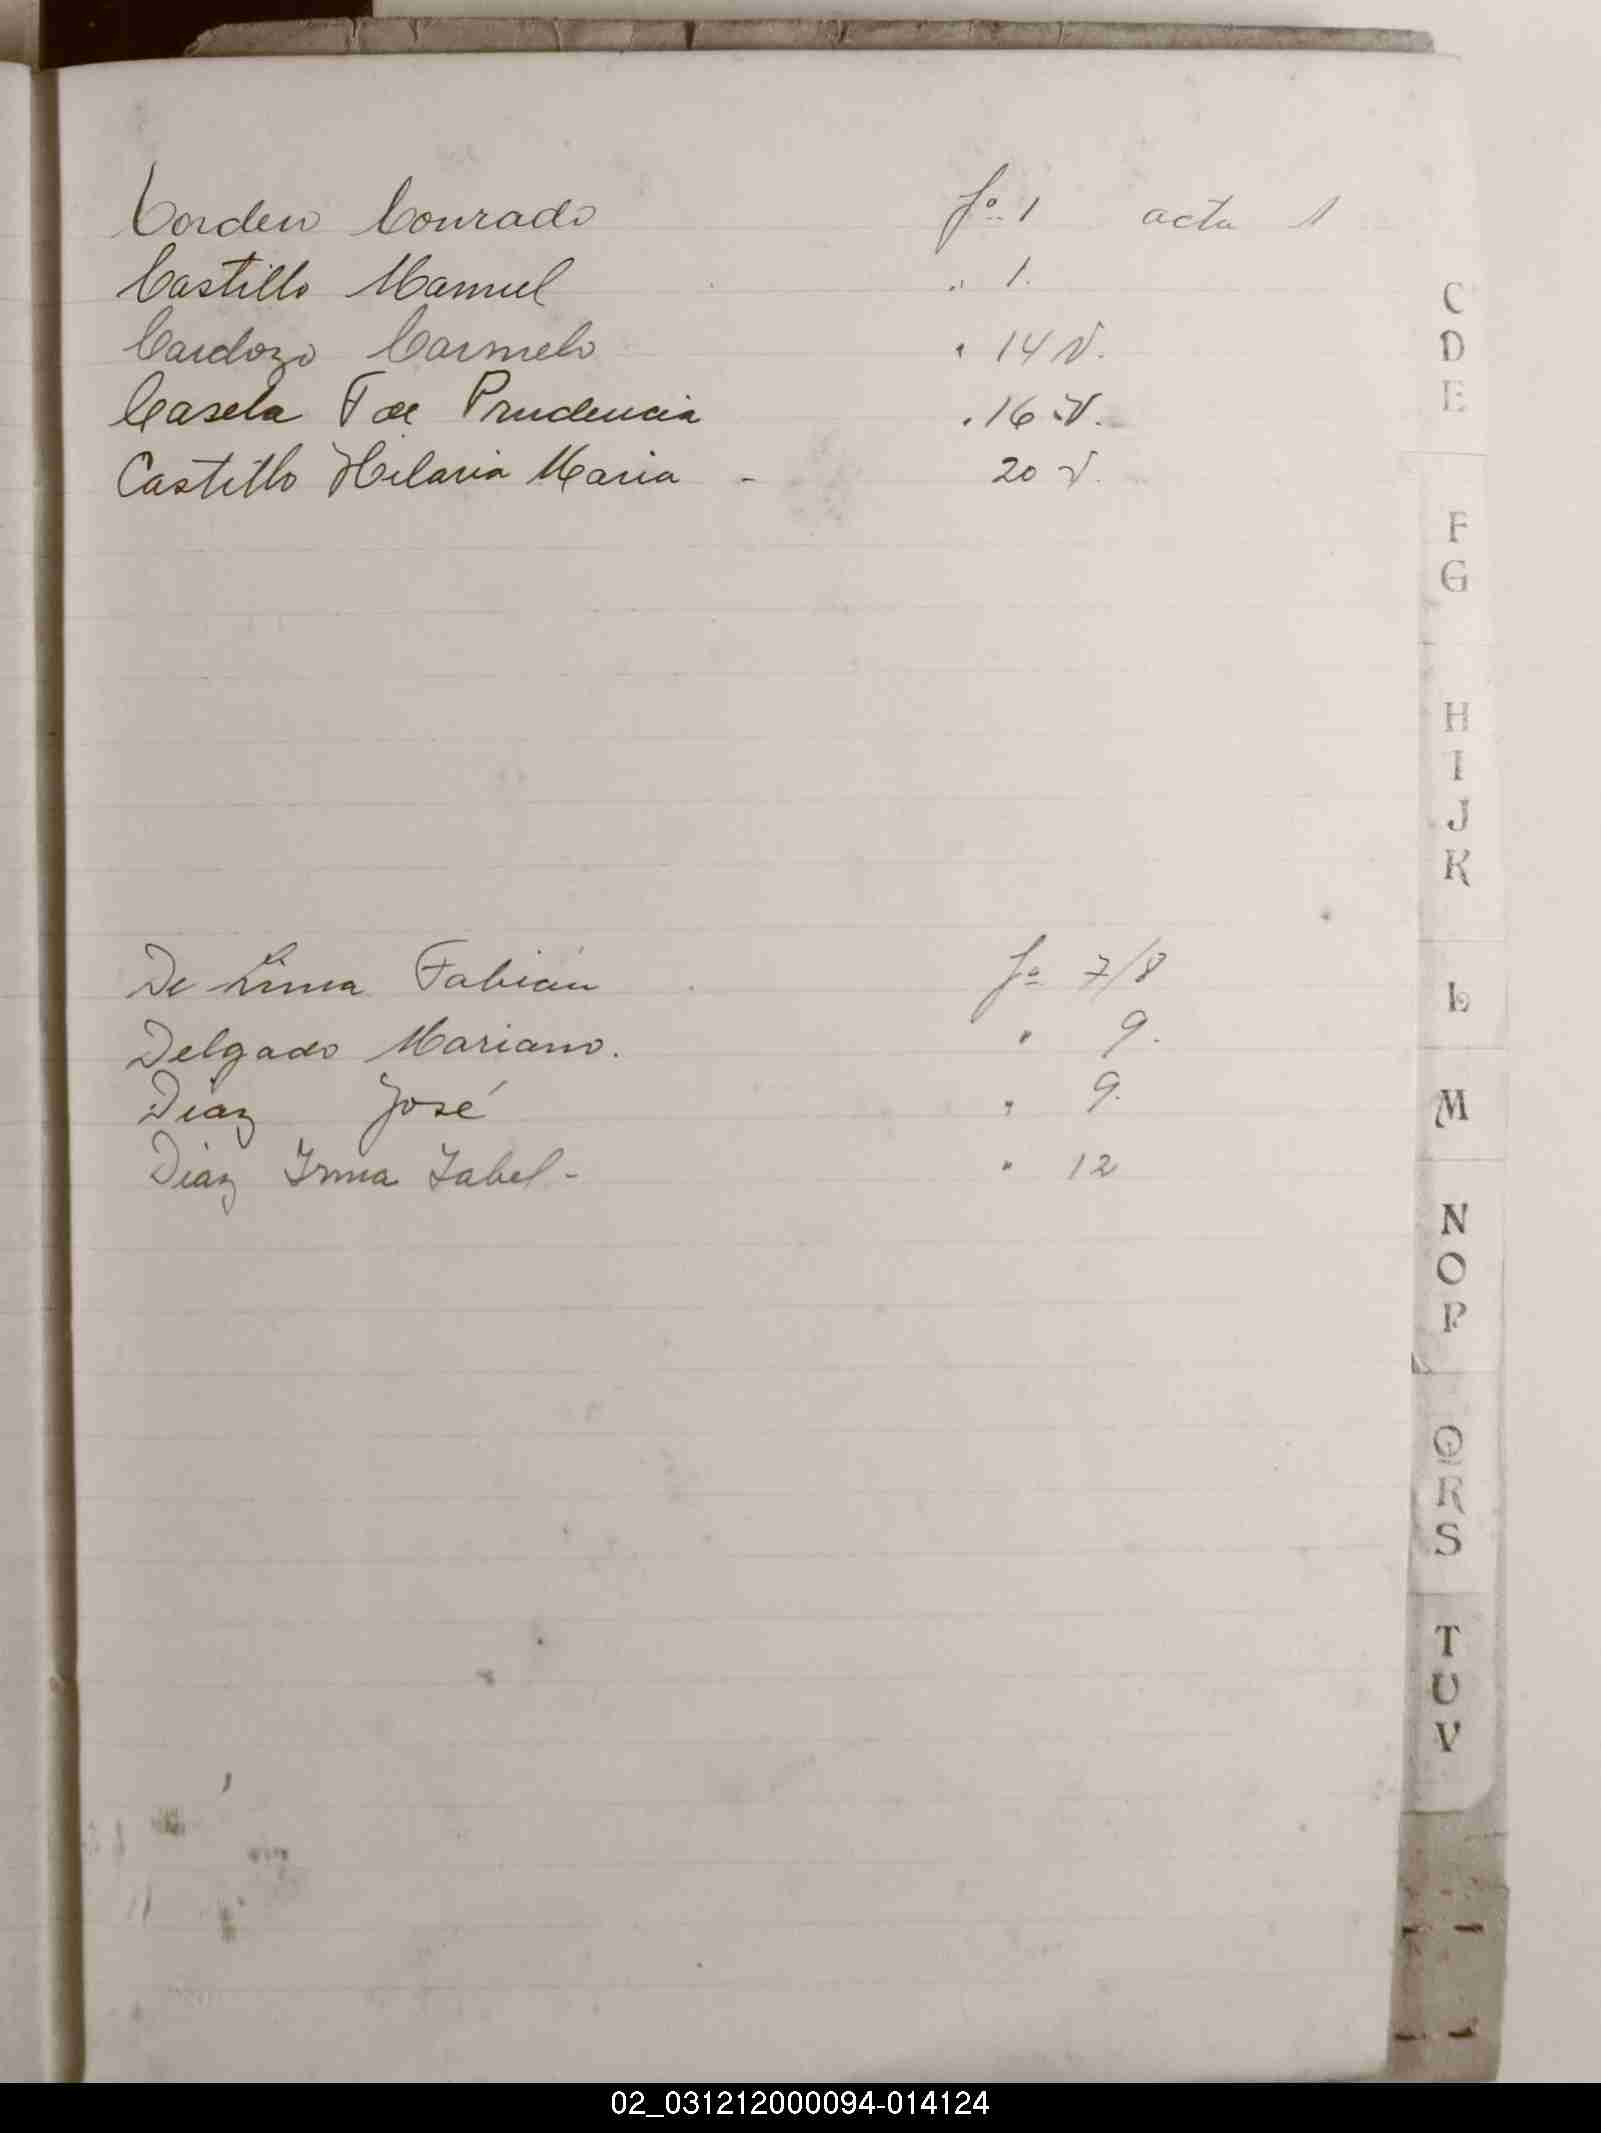 Corden Conrado fº 1 acta 1
Castillo Manuel " 1.
Cardozo Carmelo " 14 V.
Casela F de Prudencia " 16 V.
Castillo Hilaria Maria - 20 V.
De Lima Fabián fº 7/8
Delgado Mariano. " 9.
Diaz José " 9.
Diaz Irma Isabel - " 12
C
D
E
F
G
H
I
J
K
L
M
N
O
P
Q
R
S
T
U
V
02_031212000094-014124